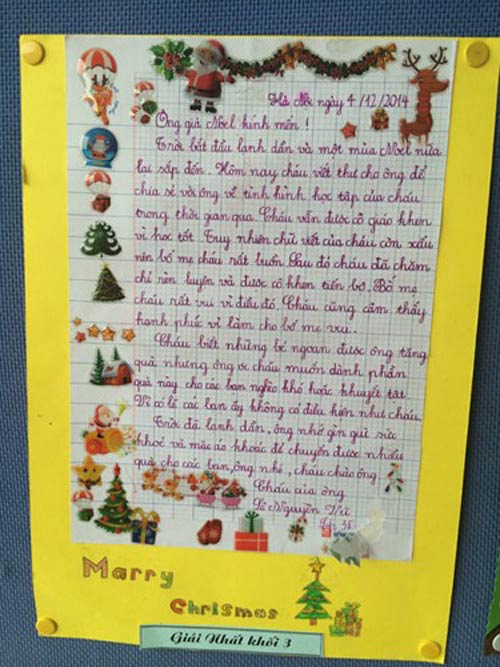 Hà Nội ngày 4/12/2014
Ông già Noel kính mến !
Trời bắt đầu lạnh dần và một mùa Noel nữa
lại sắp đến. Hôm nay cháu viết thư cho ông để
chia sẻ với ông về tình hình học tập của cháu
trong thời gian qua. Cháu vẫn được cô giáo khen
vì học tốt. Tuy nhiên chữ viết của cháu còn xấu
nên bố mẹ cháu rất buồn. Sau đó cháu đã chăm
chỉ rèn luyện và được cô khen tiến bộ. Bố mẹ
cháu rất vui vì điều đó. Cháu cũng cảm thấy
hạnh phúc vì làm cho bố mẹ vui.
Cháu biết những bé ngoan được ông tặng
quà nhưng ông ơi cháu muốn dành phần
quà này cho các bạn nghèo khó hoặc khuyết tật
Vì có lẽ các bạn ấy không có điều kiện như cháu.
Trời đã lạnh dần, ông nhớ giữ gìn sức
khoẻ và mặc áo khoác để chuyển được nhiều
quà cho các bạn, ông nhé, cháu chào ông.
Cháu của ông
Lê Nguyên Vũ
3E
Marry
Chrismas
Giải Nhất khối 3